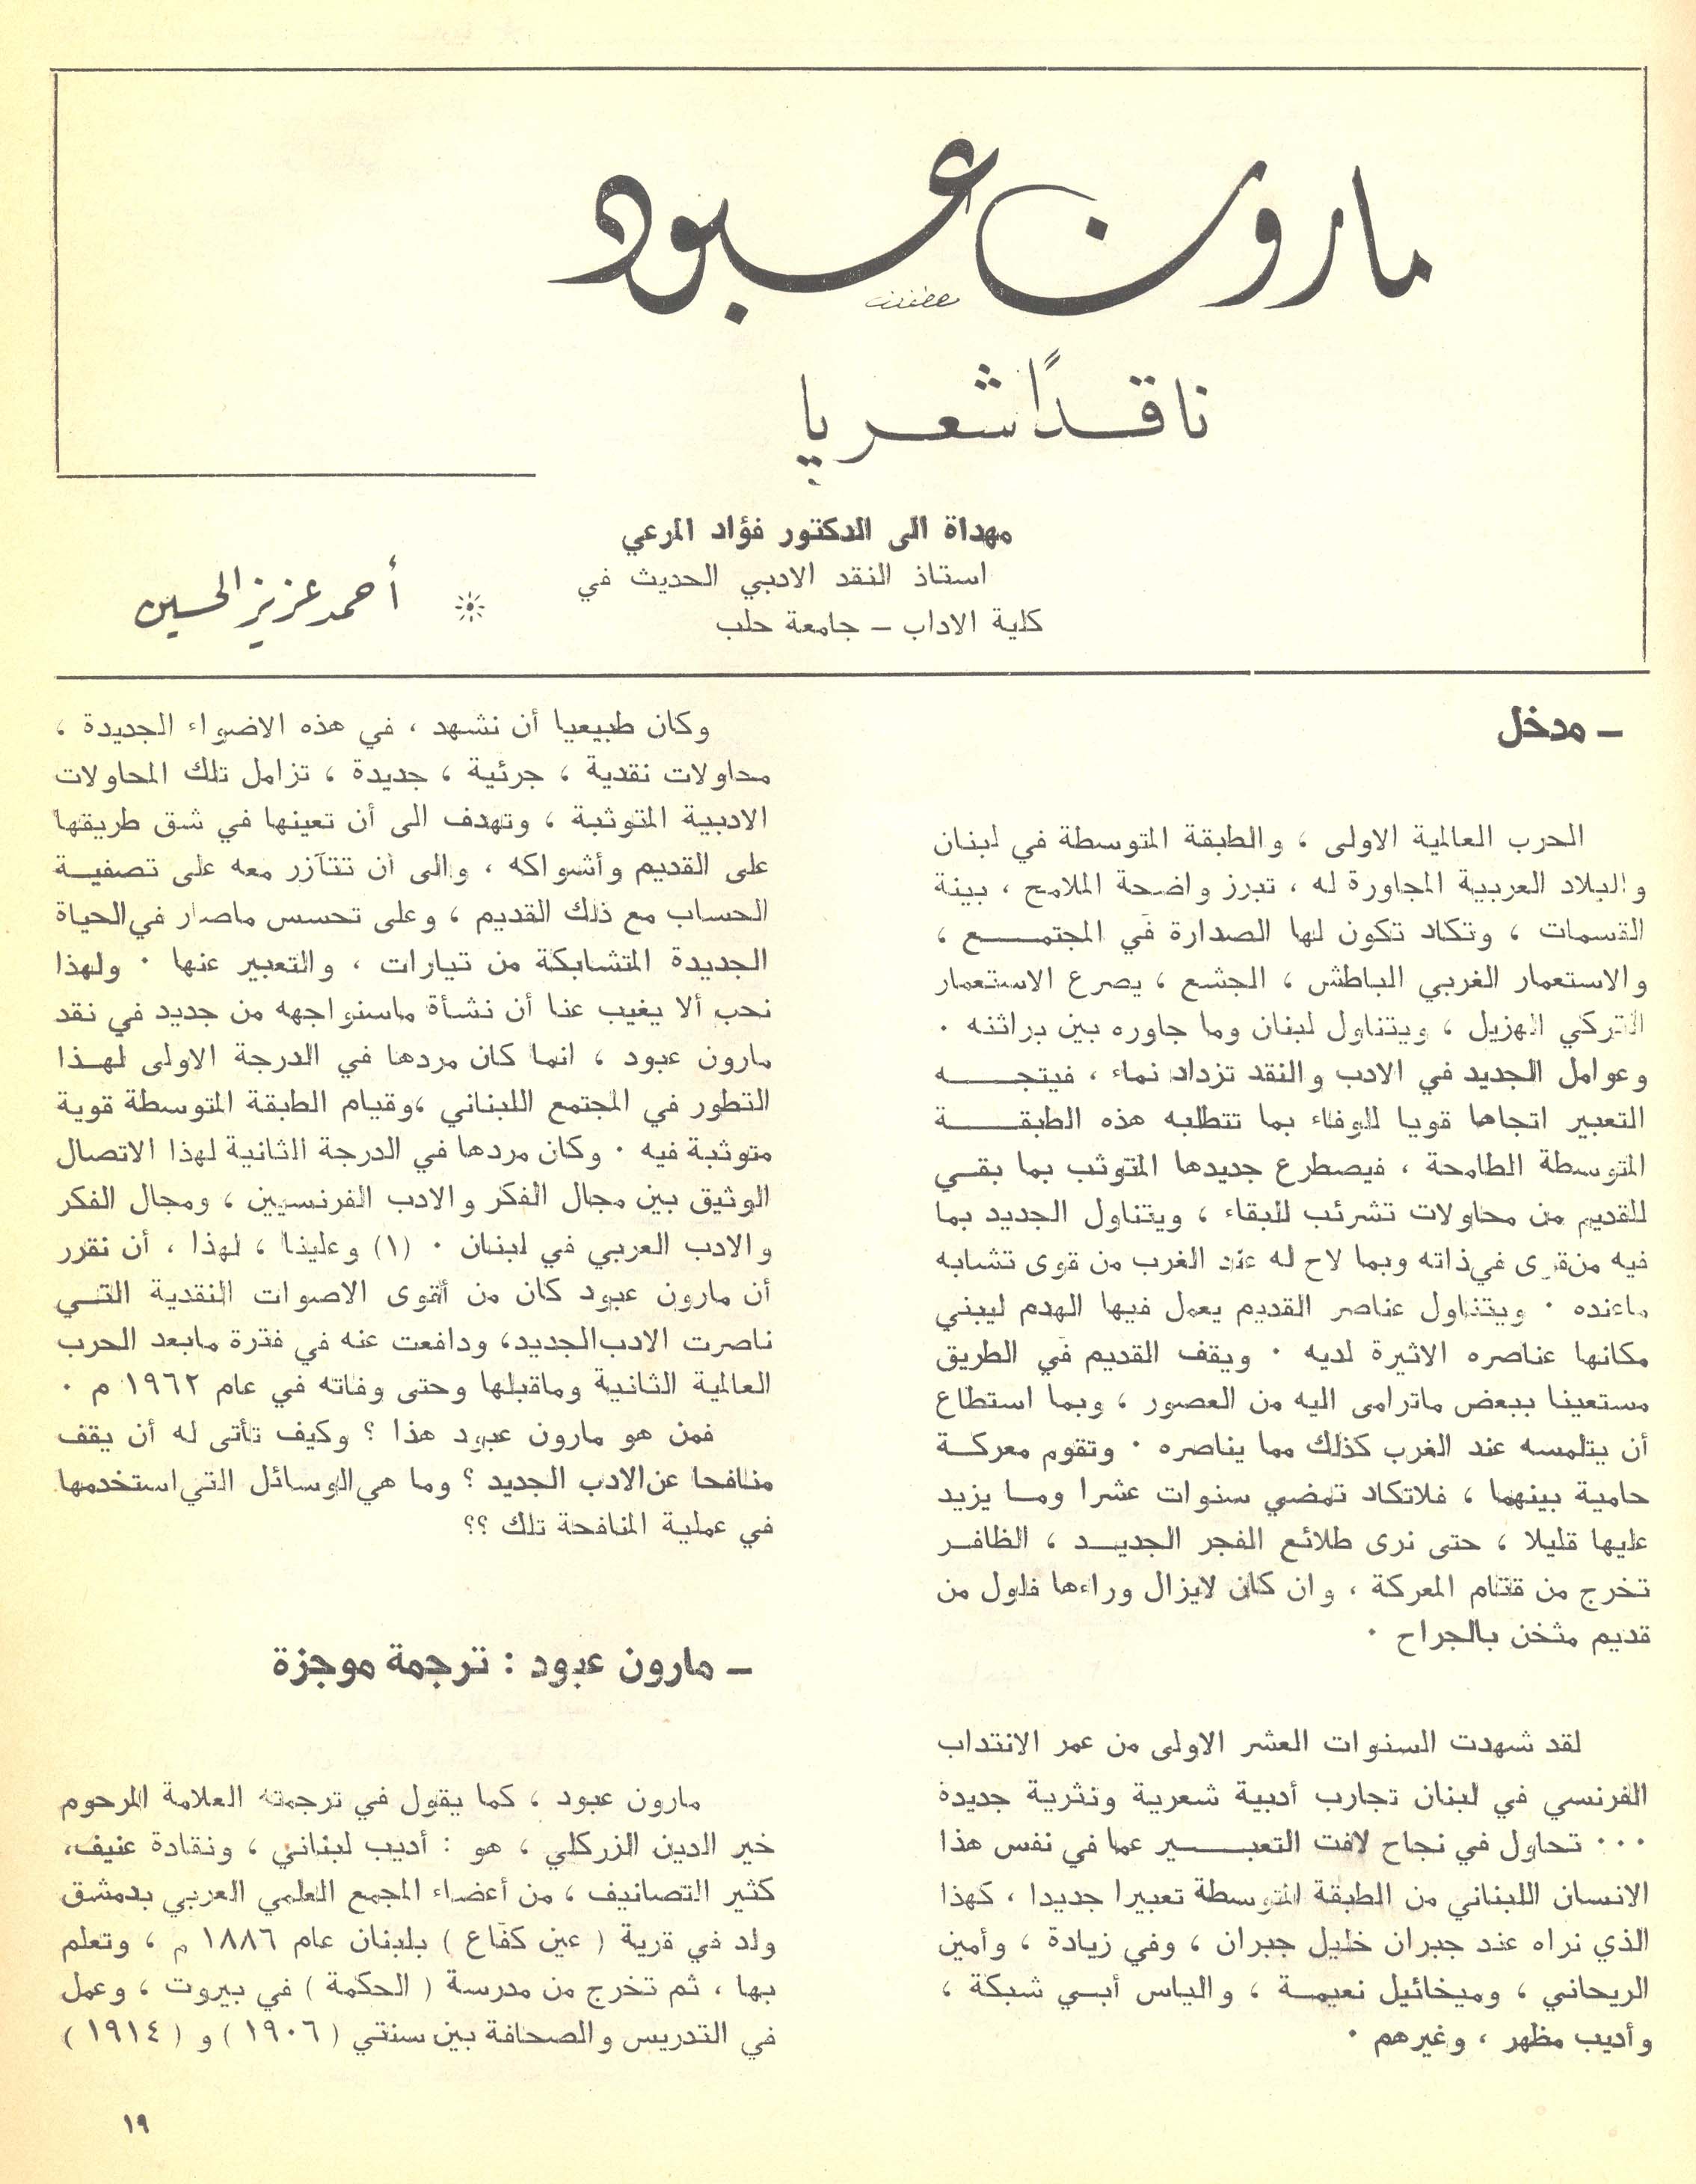 مارون عبود
ناقداً شعريا
مهداة الى الدكتور فؤاد المرعي
استاذ النقد الادبي الحديث في
كلية الاداب — جامعة حلب
أحمد عزيز الحسين
— مدخل
الحرب العالمية الاولى ، والطبقة المتوسطة في لبنان
والبلاد العربية المجاورة له ، تبرز واضحة الملامح ، بينة
القسمات ، وتكاد تكون لها الصدارة في المجتمع ،
والاستعمار الغربي الباطش ، الجشع ، يصرع الاستعمار
التركي الهزيل ، ويتناول لبنان وما جاوره بين براثنه .
وعوامل الجديد في الادب والنقد تزداد نماء ، فيتجه
التعبير اتجاها قويا للوفاء بما تتطلبه هذه الطبقة
المتوسطة الطامحة ، فيصطرع جديدها المتوثب بما بقي
للقديم من محاولات تشرئب للبقاء ، ويتناول الجديد بما
فيه من قوى في ذاته وبما لاح له عند الغرب من قوى تشابه
ماعنده . ويتناول عناصر القديم يعمل فيها الهدم ليبني
مكانها عناصره الاثيرة لديه . ويقف القديم في الطريق
مستعينا ببعض ماترامى اليه من العصور ، وبما استطاع
أن يتلمسه عند الغرب كذلك مما يناصره . وتقوم معركة
حامية بينهما ، فلاتكاد تمضي سنوات عشرا وما يزيد
عليها قليلا ، حتى نرى طلائع الفجر الجديد ، الظافر
تخرج من قتام المعركة ، وان كان لايزال وراءها فلول من
قديم مثخن بالجراح .
لقد شهدت السنوات العشر الاولى من عمر الانتداب
الفرنسي في لبنان تجارب أدبية شعرية ونثرية جديدة
... تحاول في نجاح لافت التعبير عما في نفس هذا
الانسان اللبناني من الطبقة المتوسطة تعبيرا جديدا ، كهذا
الذي نراه عند جبران خليل جبران ، وفي زيادة ، وأمين
الريحاني ، وميخائيل نعيمة ، والياس أبي شبكة ،
وأديب مظهر ، وغيرهم .
وكان طبيعيا أن نشهد ، في هذه الاضواء الجديدة ،
محاولات نقدية ، جرئية ، جديدة ، تزامل تلك المحاولات
الادبية المتوثبة ، وتهدف الى أن تعينها في شق طريقها
على القديم وأشواكه ، والى أن تتآزر معه على تصفية
الحساب مع ذلك القديم ، وعلى تحسس ماصار في الحياة
الجديدة المتشابكة من تيارات ، والتعبير عنها . ولهذا
نحب ألا يغيب عنا أن نشأة ماسنواجهه من جديد في نقد
مارون عبود ، انما كان مردها في الدرجة الاولى لهذا
التطور في المجتمع اللبناني ،وقيام الطبقة المتوسطة قوية
متوثبة فيه . وكان مردها في الدرجة الثانية لهذا الاتصال
الوثيق بين مجال الفكر والادب الفرنسيين ، ومجال الفكر
والادب العربي في لبنان . (١) وعلينا ، لهذا ، أن نقرر
أن مارون عبود كان من أقوى الاصوات النقدية التي
ناصرت الادب الجديد، ودافعت عنه في فترة مابعد الحرب
العالمية الثانية وماقبلها وحتى وفاته في عام ١٩٦٢ م .
فمن هو مارون عبود هذا ؟ وكيف تأتى له أن يقف
منافحا عن الادب الجديد ؟ وما هي الوسائل التي استخدمها
في عملية المنافحة تلك ؟؟
— مارون عبود : ترجمة موجزة
مارون عبود ، كما يقول في ترجمته العلامة المرحوم
خير الدين الزركلي ، هو : أديب لبناني ، ونقادة عنيف،
كثير التصانيف ، من أعضاء المجمع العلمي العربي بدمشق
ولد في قرية ( عين كفاع ) بلبنان عام ١٨٨٦ م ، وتعلم
بها ، ثم تخرج من مدرسة ( الحكمة ) في بيروت ، وعمل
في التدريس والصحافة بين سنتي ( ١٩٠٦ ) و ( ١٩١٤ )
١٩